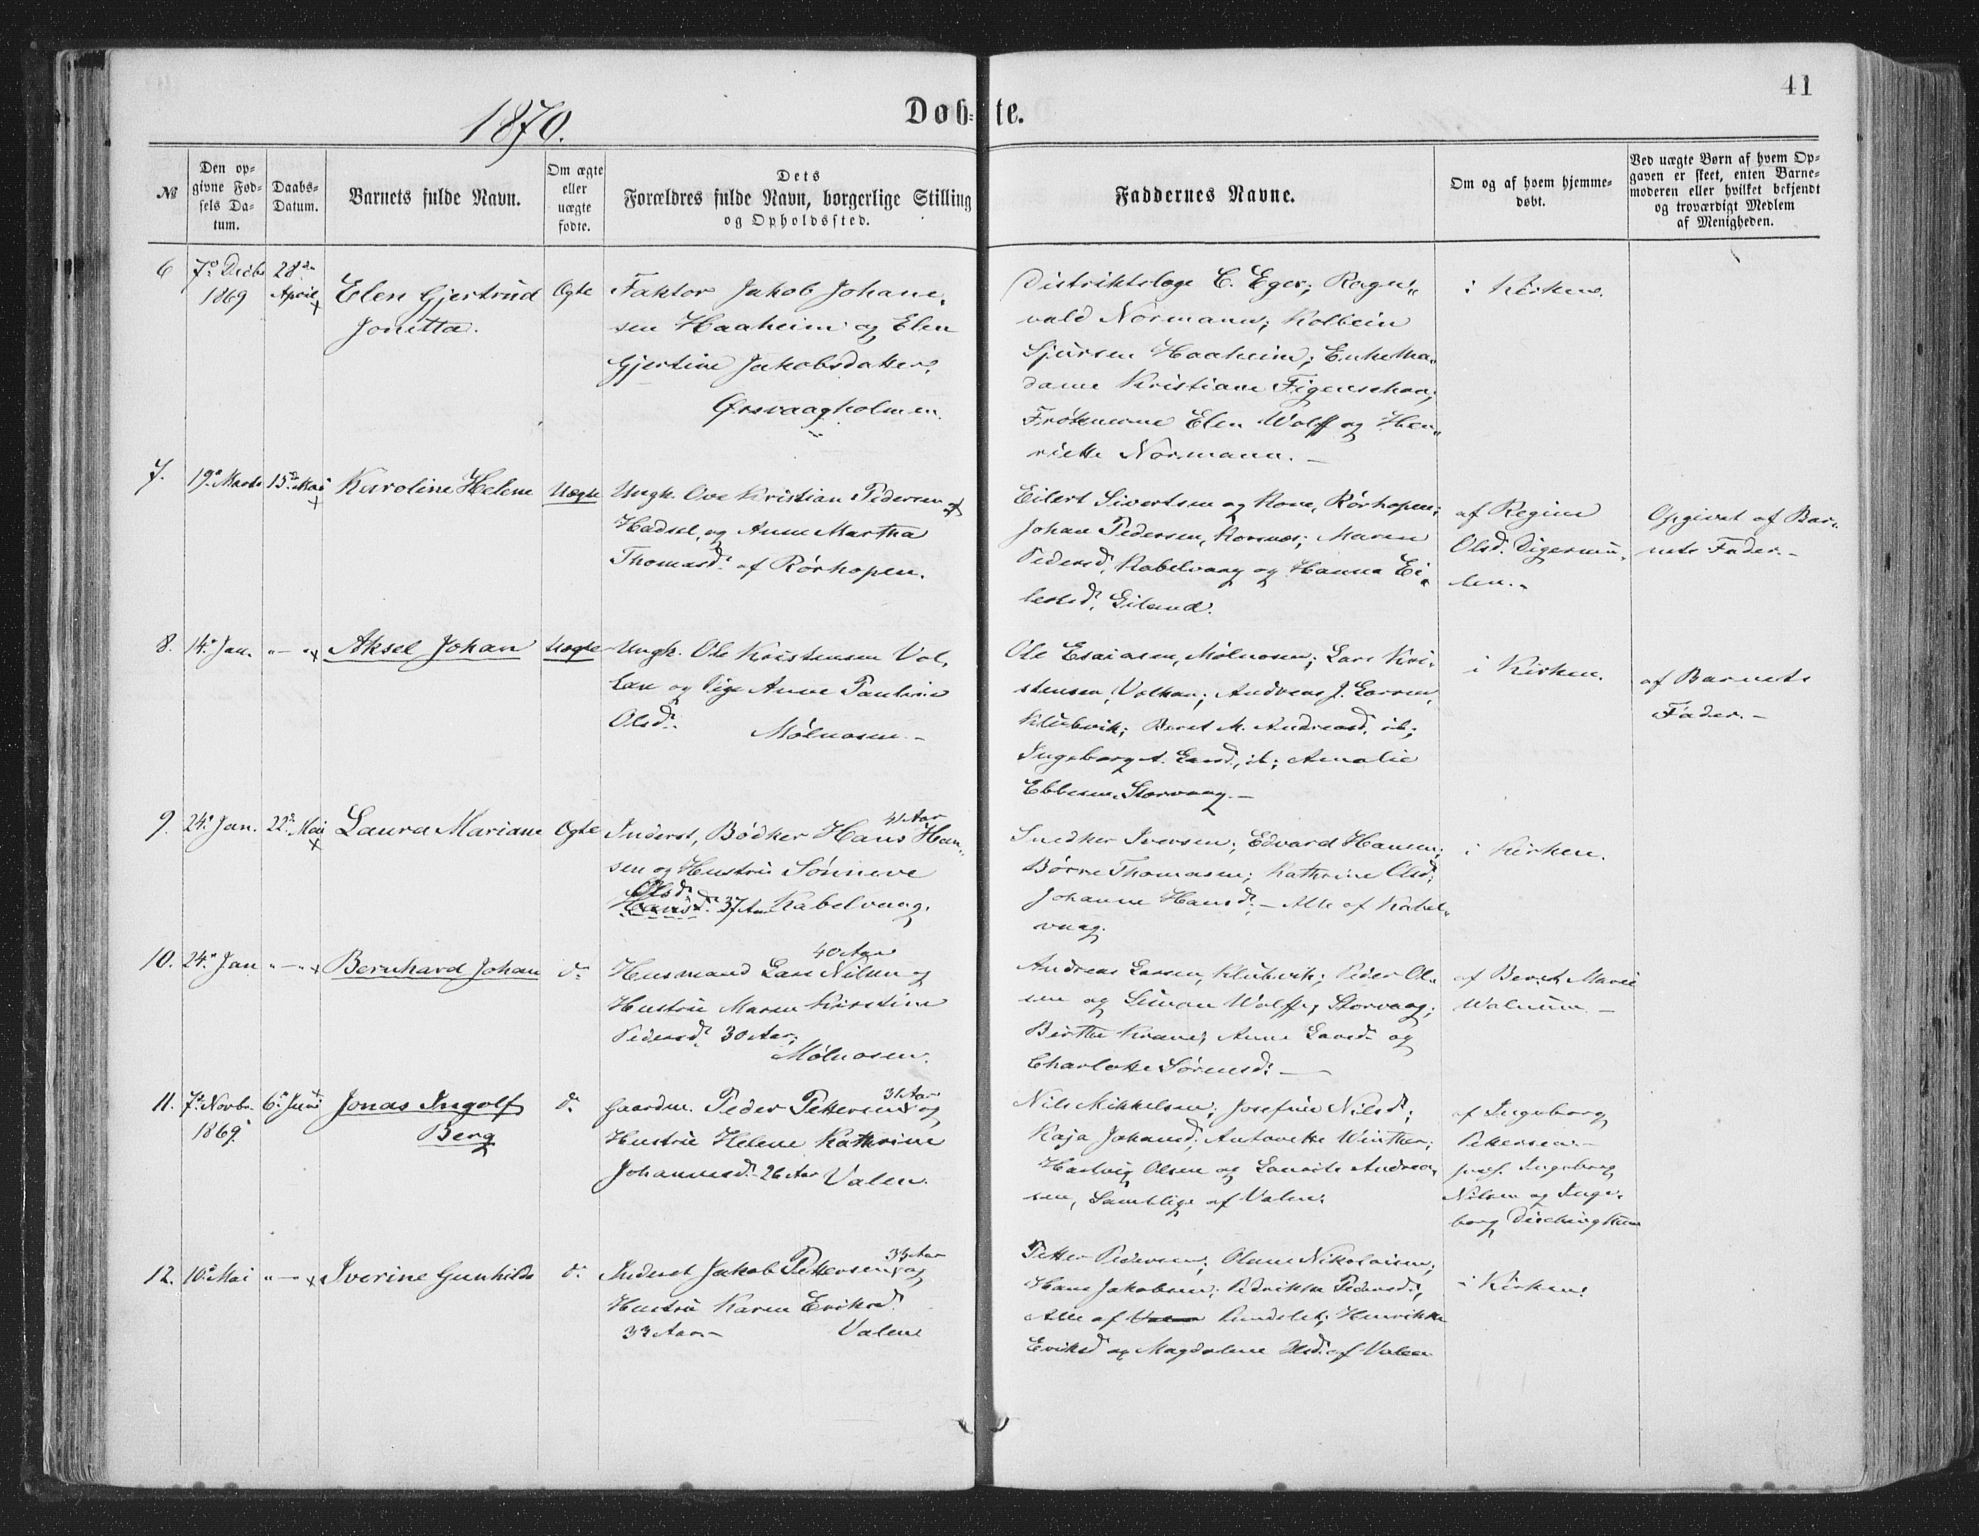 41
1870.
Døb-te.
№
Den op-
givne Fød-
sels Da-
tum.
Daabs-
Datum.
Barnets fulde Navn.
Om ægte
eller
uægte
fødte.
Dets
Forældres fulde Navn, borgerlige Stilling
og Opholdssted.
Faddernes Navne.
Om og af hvem hjemme-
døbt.
Ved uægte Børn af hvem Op-
gaven er skeet, enten Barne-
moderen eller hvilket bekjendt
og troværdigt Medlem
af Menigheden.
6
7de Decbr
1869
28de
April
Elen Gjertrud
Jonetta.
Ægte
Faktor Jakob Johane-
sen Haaheim og Elen
Gjertine Jakobsdatter.
Ørsvaagholmen.
Distriktslæge C. Eger; Ragn-
vald Normann; Kolbein
Sjursen Haaheim; Enkema-
dame Kristiane Figenschou;
Frøknerne Elen Wolff og Hen-
riette Normann. -
i Kirken.
7.
19de Marts
15de Mai
Karoline Helene
Uægte
Ungk. Ove Kristian Pedersen af
Hadsel, og Anne Martha
Thomasd. af Rørhopen.
Eilert Sivertsen og Kone, Rørhopen;
Johan Pedersen, Korsnæs; Maren
Pedersd. Kabelvaag og Hanna Ei-
lertsd.
af Regine
Olsd. Digermu-
len. -
Opgivet af Bar-
nets Fader. -
8.
14de Jan.
" - "
Aksel Johan
Uægte
Ungk. Ole Kristensen Vol-
len og Pige Anne Pauline
Olsd. Mølnosen. -
Ole Esaiasen, Mølnosen; Lars Kri-
stensen, Andreas J. Larsen,
Klubvik; Beret M. Andreasd. ib;
Ingeborg A. Larsd., ib; Amalie
Ebbesen, Storvaag. -
i Kirken.
af Barnets
Fader. -
9.
24de Jan.
22de Mai
Laura Mariane
Ægte
41 Aar
Inderst, Bødker Hans Han-
sen og Hustru Sønneve
Olsd.
Hansd. 37 Aar Kabelvaag.
Snedker Iversen; Edvard Hansen;
Børre Thomasen; Kathrine Olsd.
Johanne Hansd. - Alle af Kabel-
vaag.
i Kirken.
10.
24de Jan
" - "
Bernhard Johan
do
40 Aar
Husmand Lars Nilsen og
Hustru Maren Kirstine
Pedersd. 30 Aar;
Mølnosen.
Andreas Larsen, Klubvik; Peder Ol-
sen og Simon Wolff, Storvaag;
Birthe Krane; Anne Larsd. og
Charlotte Sørensd. -
af Berit Marie
Walnum -
11.
7de Novbr
1869
6te Juni
Jonas Ingolf
Berg
do
31 Aar
Gaardm. Peder Pettersen og
Hustru Helene Kathrine
Johannesd. 26 Aar Valen.
Nils Mikkelsen; Josefine Nilsd.;
Kaja Johansd.; Antonette Winther;
Hartvig Olsen og Laurits Andrea-
sen, Samtlige af Valen.
af Ingeborg
Pettersen. -
Ingeborg
Nilsen og Inge-
borg
12.
10de Mai
" - "
Iverine Gunhilda
do
33 Aar
Inderst Jakob Pettersen og
Hustru Karen Eriksd.
33 Aar - Valen
Petter Pedersen; Olane Nikolaisen;
Hans Jakobsen; Pedrikke Pedersd.;
Alle af Valen Henrikke
Eriksd og Magdalene af Valen
i Kirken.